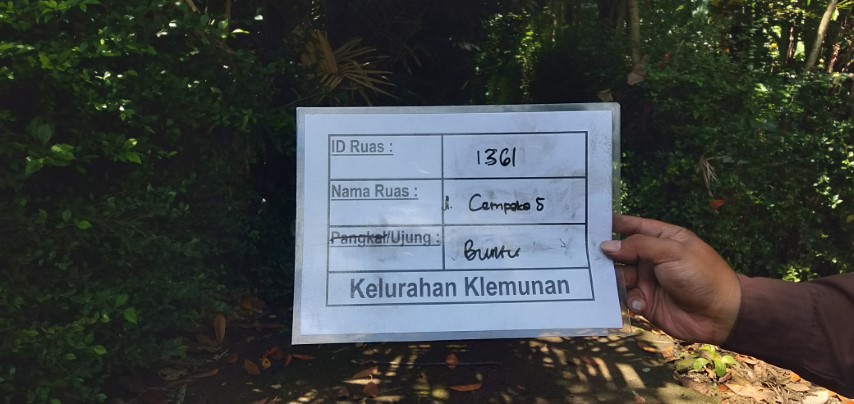 ID Ruas : 1361
Nama Ruas : Jl. Cempaka 5
Pangkal/Ujung : Buntu
Kelurahan Klemunan